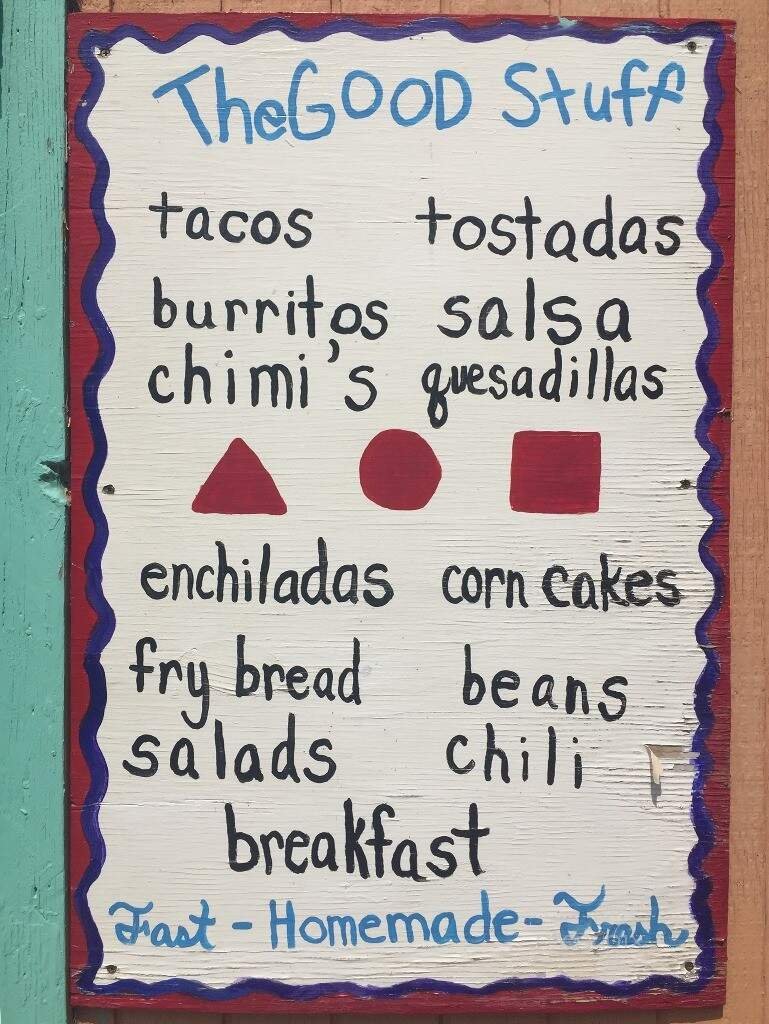 The GOOD Stuff
tacos tostadas
burritos salsa
chimi's quesadillas
enchiladas corn cakes
fry bread beans
salads chili
breakfast
Fast - Homemade - Fresh